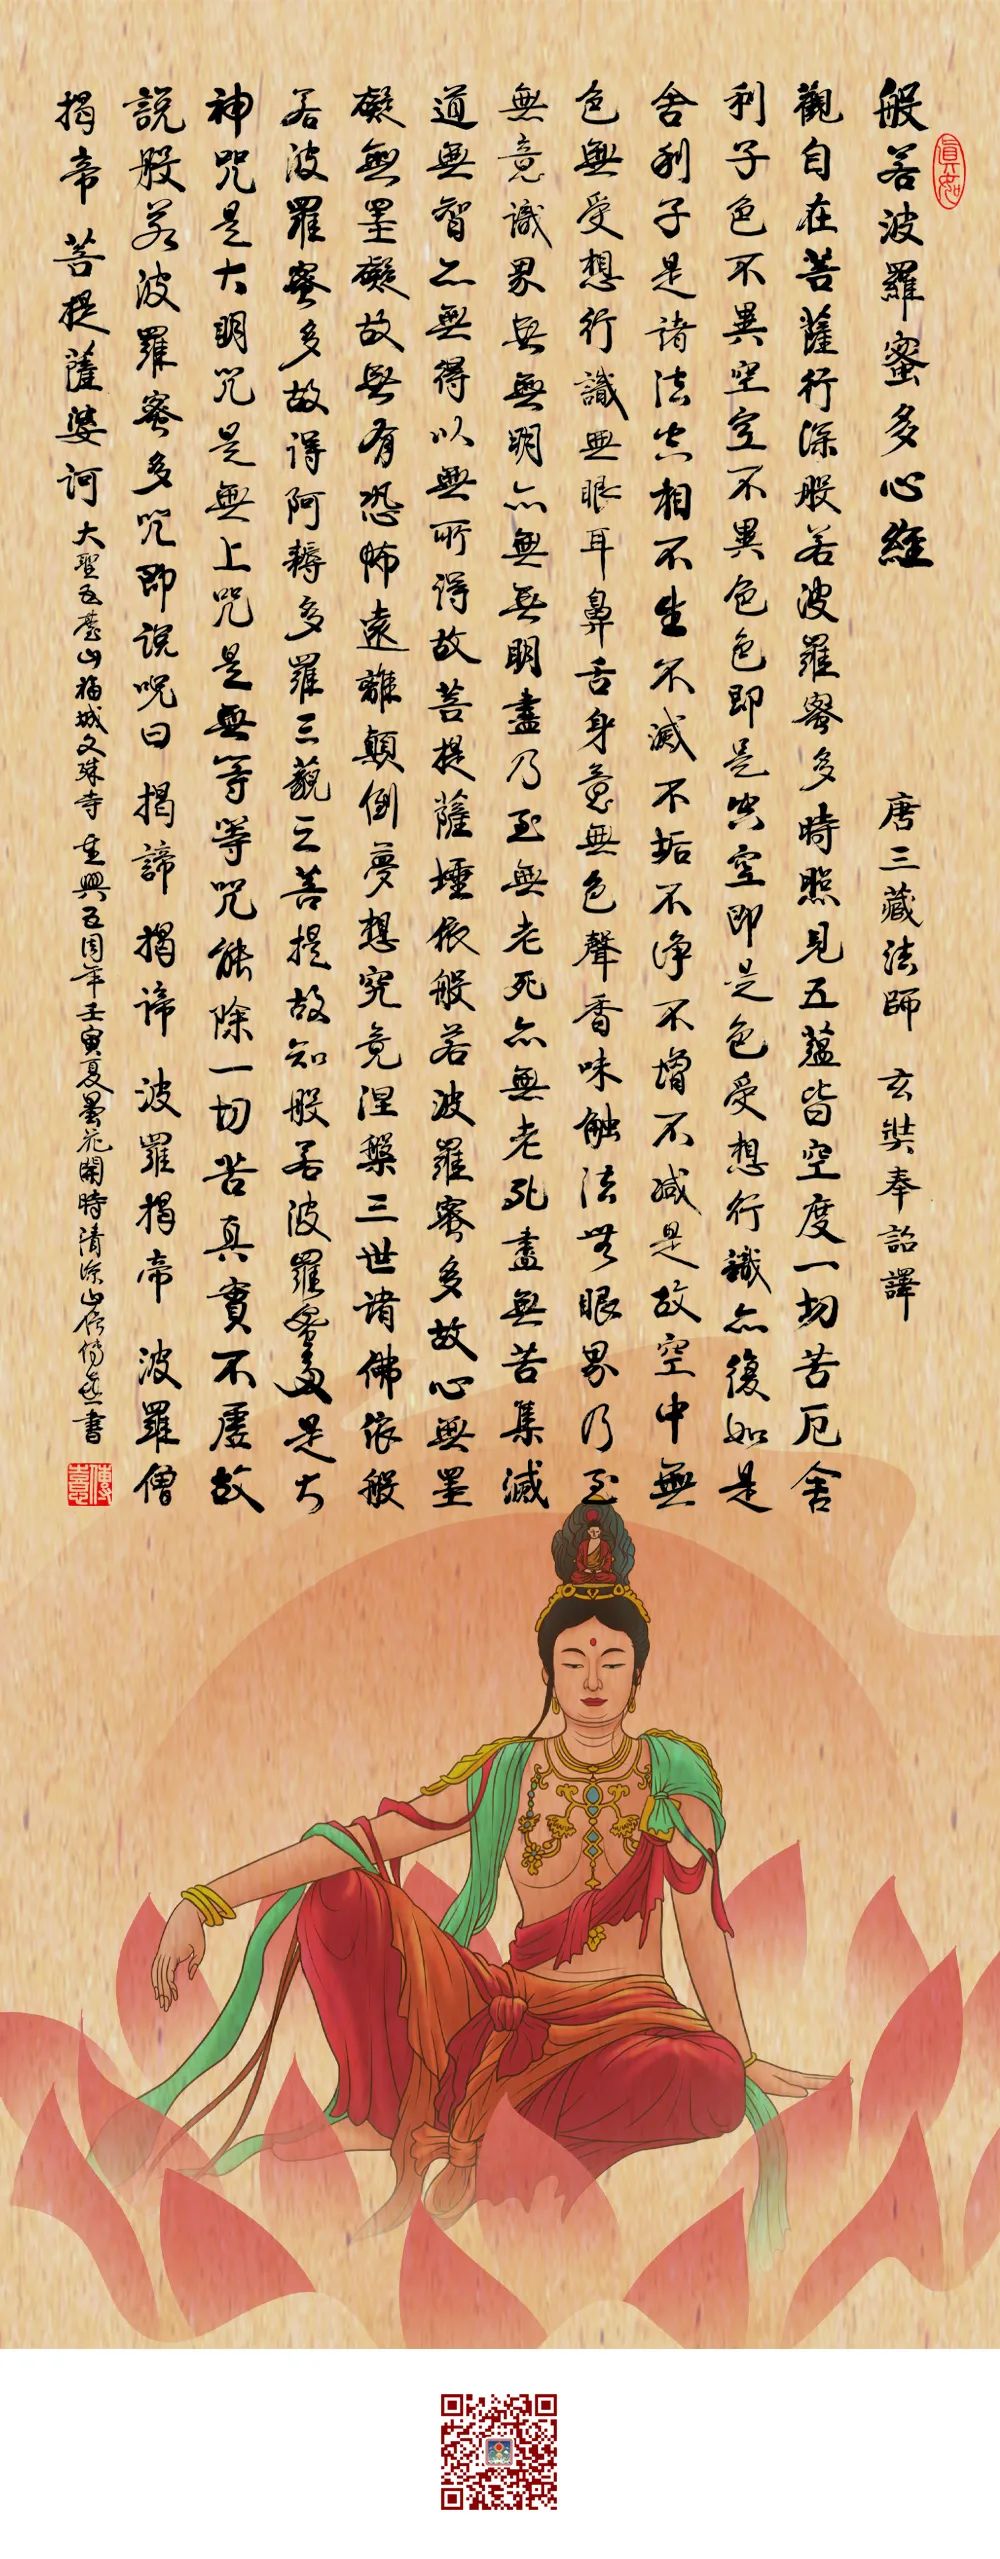 真如
般若波羅蜜多心經 唐三藏法師 玄奘奉詔譯
觀自在菩薩行深般若波羅蜜多時照見五蘊皆空度一切苦厄舍
利子色不異空空不異色色即是空空即是色受想行識亦復如是
舍利子是諸法空相不生不滅不垢不净不增不減是故空中無
色無受想行識無眼耳鼻舌身意無色聲香味触法無眼界乃至
無意識界無無明亦無無明盡乃至無老死亦無老死盡無苦集滅
道無智亦無得以無所得故菩提薩埵依般若波羅蜜多故心無罣
礙無罣礙故無有恐怖遠離顛倒夢想究竟涅槃三世諸佛依般
若波羅蜜多故得阿耨多羅三藐三菩提故知般若波羅蜜多是大
神咒是大明咒是無上咒是無等等咒能除一切苦真實不虛故
說般若波羅蜜多咒即说咒曰 揭諦 揭諦 波羅揭帝 波羅僧
揭帝 菩提薩婆訶 大聖五臺山福城文殊寺 重興五周年壬寅夏曇花開時清涼山居傅熹書
傅熹